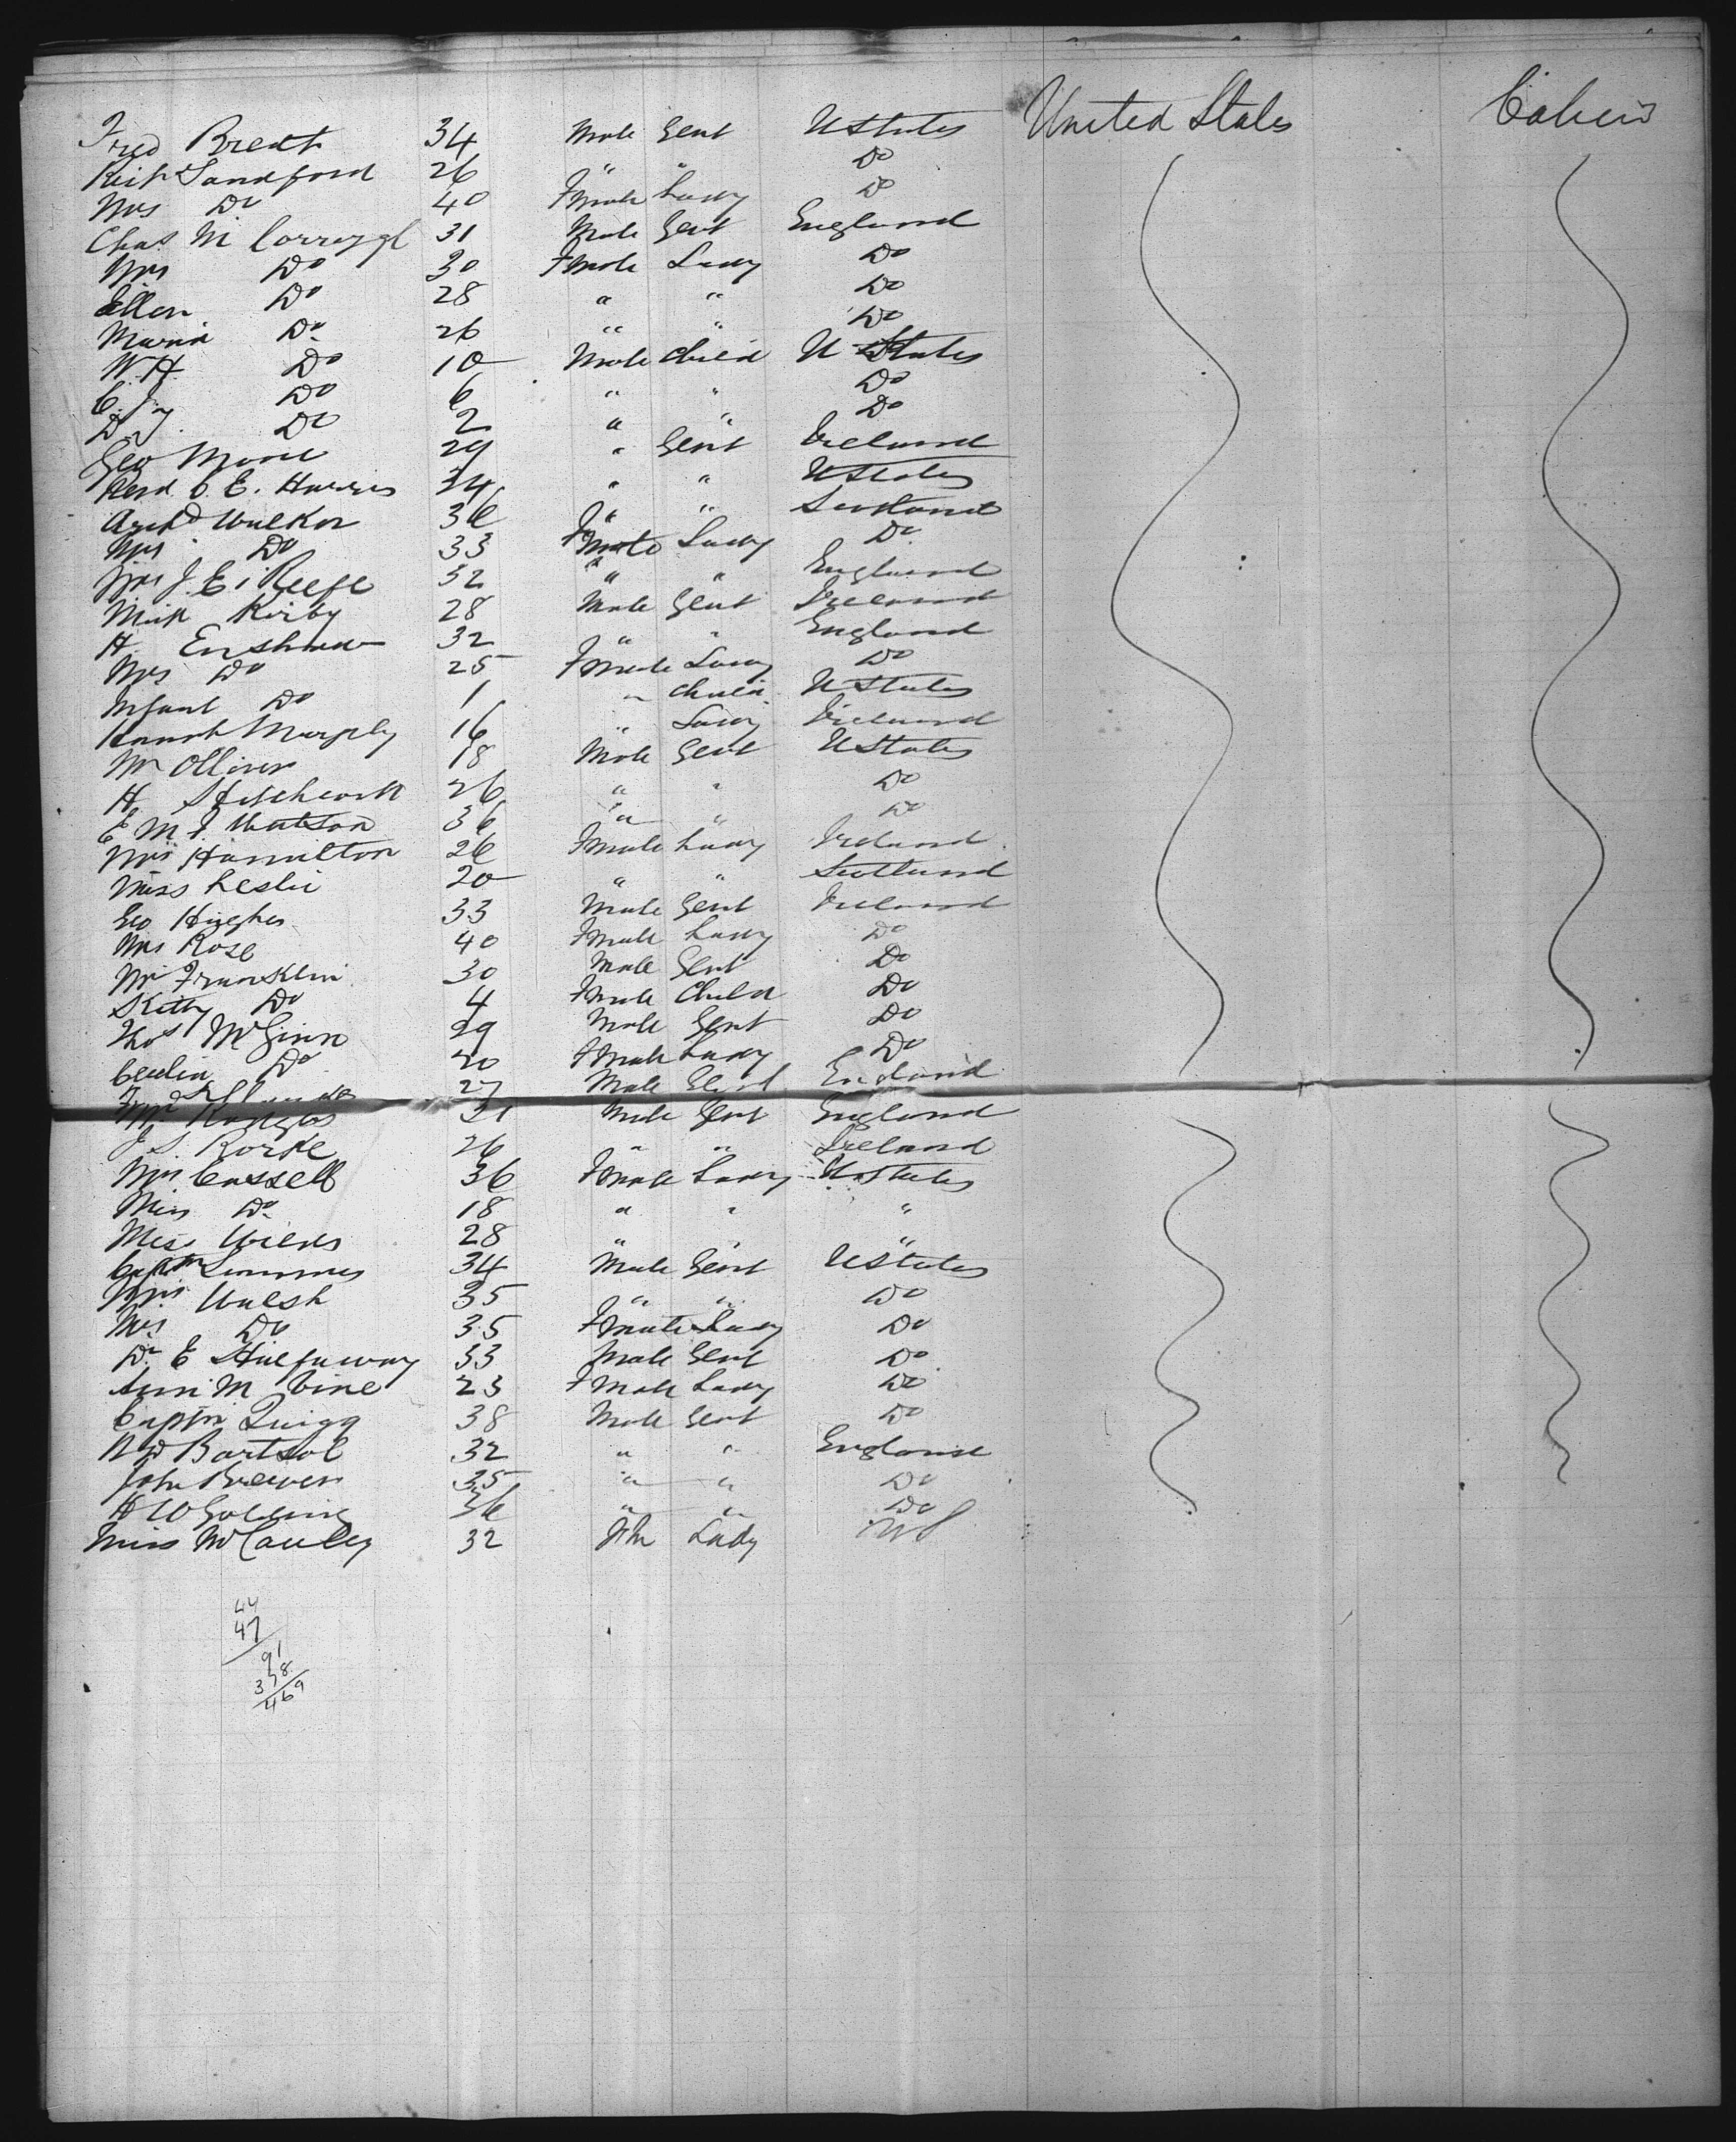 Fred Brecht 34 Male Gent U States United States Cabin
Rich Sandford 26 " " Do
Mrs Do 40 Fmale Lady Do
Chas M 31 Male Gent England
Mrs Do 30 Fmale Lady Do
Ellen Do 28 " " Do
Maria Do 26 " " Do
W. H. Do 10 Male Child U States
C. Do 6 " " Do
D. J. Do 2 " " Do
Geo 29 " Gent Ireland
Revd C. E. Harris 34 " " U States
Archd Walker 36 " " Scotland
Mrs Do 33 Fmale Lady Do
Mrs J. E. 32 " " England
Mick Kirby 28 Male Gent Ireland
H. Enshaw 32 " " England
Mrs Do 25 Fmale Lady Do
Infant Do 1 " Child U States
Hannah Murphy 16 " Lady Ireland
Mr Olliver 18 Male Gent U States
H. 26 " " Do
E M J. Watson 36 " " Do
Mrs Hamilton 26 Fmale Lady Ireland
Miss Leslie 20 " " Scotland
Geo Hughes 33 Male Gent Ireland
Mrs Rose 40 Fmale Lady Do
Mr Franklin 30 Male Gent Do
Kitty Do 4 Fmale Child Do
Thos McGinn 29 Male Gent Do
Cecelia Do 20 Fmale Lady Do
27 Male Gent England
Mr 21 Male Gent England
J. S. Rorke 26 " " Ireland
Mrs Cassell 36 Fmale Lady U States
Miss Do 18 " " "
28 " " "
Captn 34 Male Gent U States
Walsh 35 " " Do
Mrs Do 35 Fmale Lady Do
Dr E 33 Male Gent Do
Ann M 23 Fmale Lady Do
Captn Quigg 38 Male Gent Do
32 " " England
John Brewer 35 " " Do
H W Golding 36 " " Do
Miss McCauley 32 Fm Lady US
44
47
91
378
469